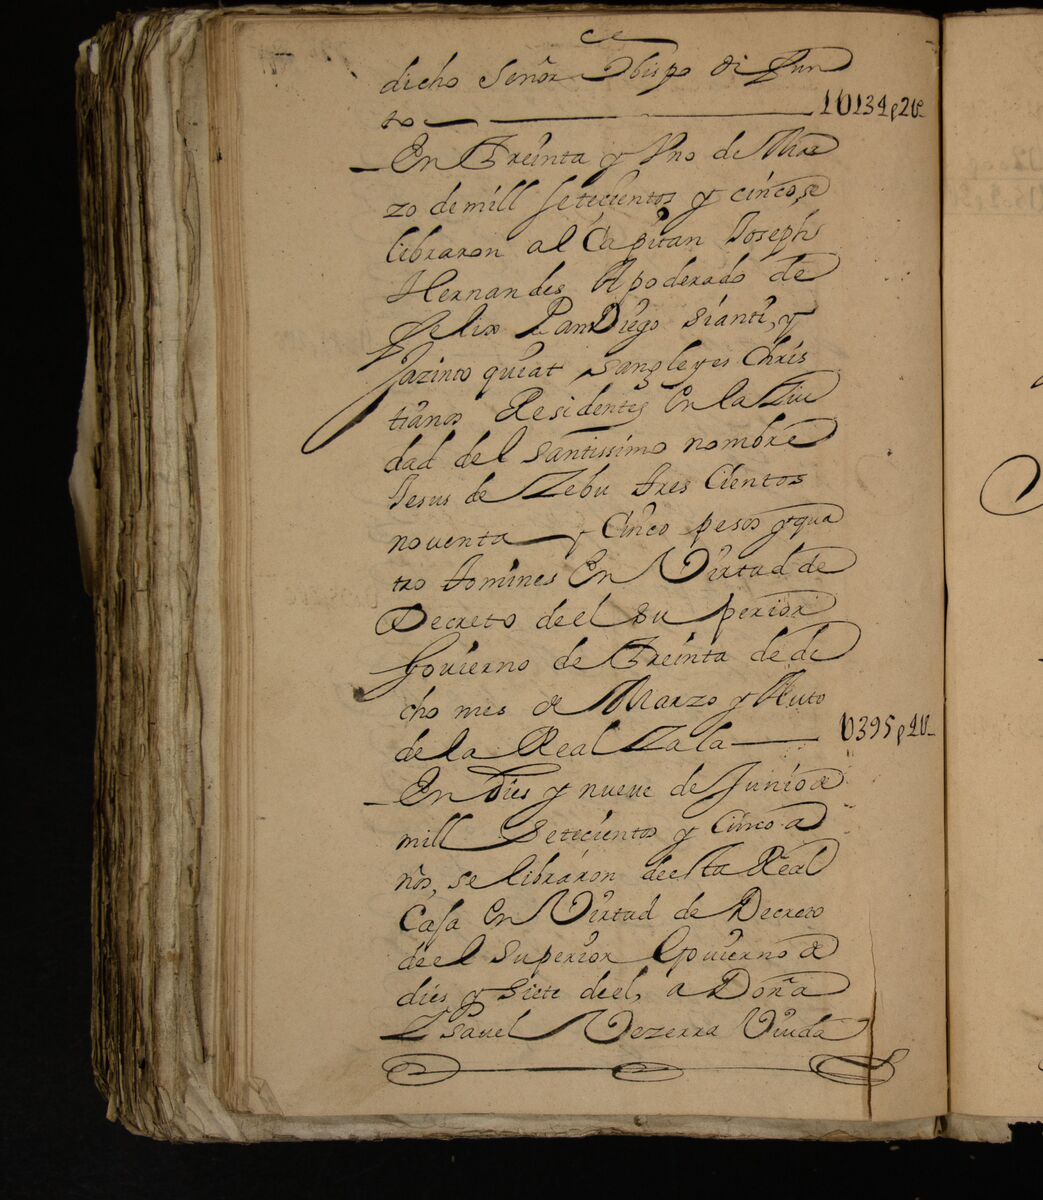 dicho Señor Obispo difun
to 1U134p2tº
En Treinta y Uno de Mar
zo de mill setecientos y cinco, se
libraron al Capitan Joseph
Hernandes Apoderado de
Felix Diego Sianti, y
Jazinto queat sangleyes Chris
tianos Residentes En la Ziu
dad del santissimo nombre
Jesus de Zebu tres Cientos
noventa y Cinco pesos y qua
tro tomines En Virtud de
Decreto de el superior
Govierno de Treinta de di
cho mes de Marzo y Auto
de la Real Zala U395p4tº
En Dies y nueve de Junio de
mill setecientos y Cinco a
ños, se libraron desta Real
Casa En Virtud de Decreto
de el superior Govierno de
dies y siete de el, a Doña
Ysavel Vezerra Viuda